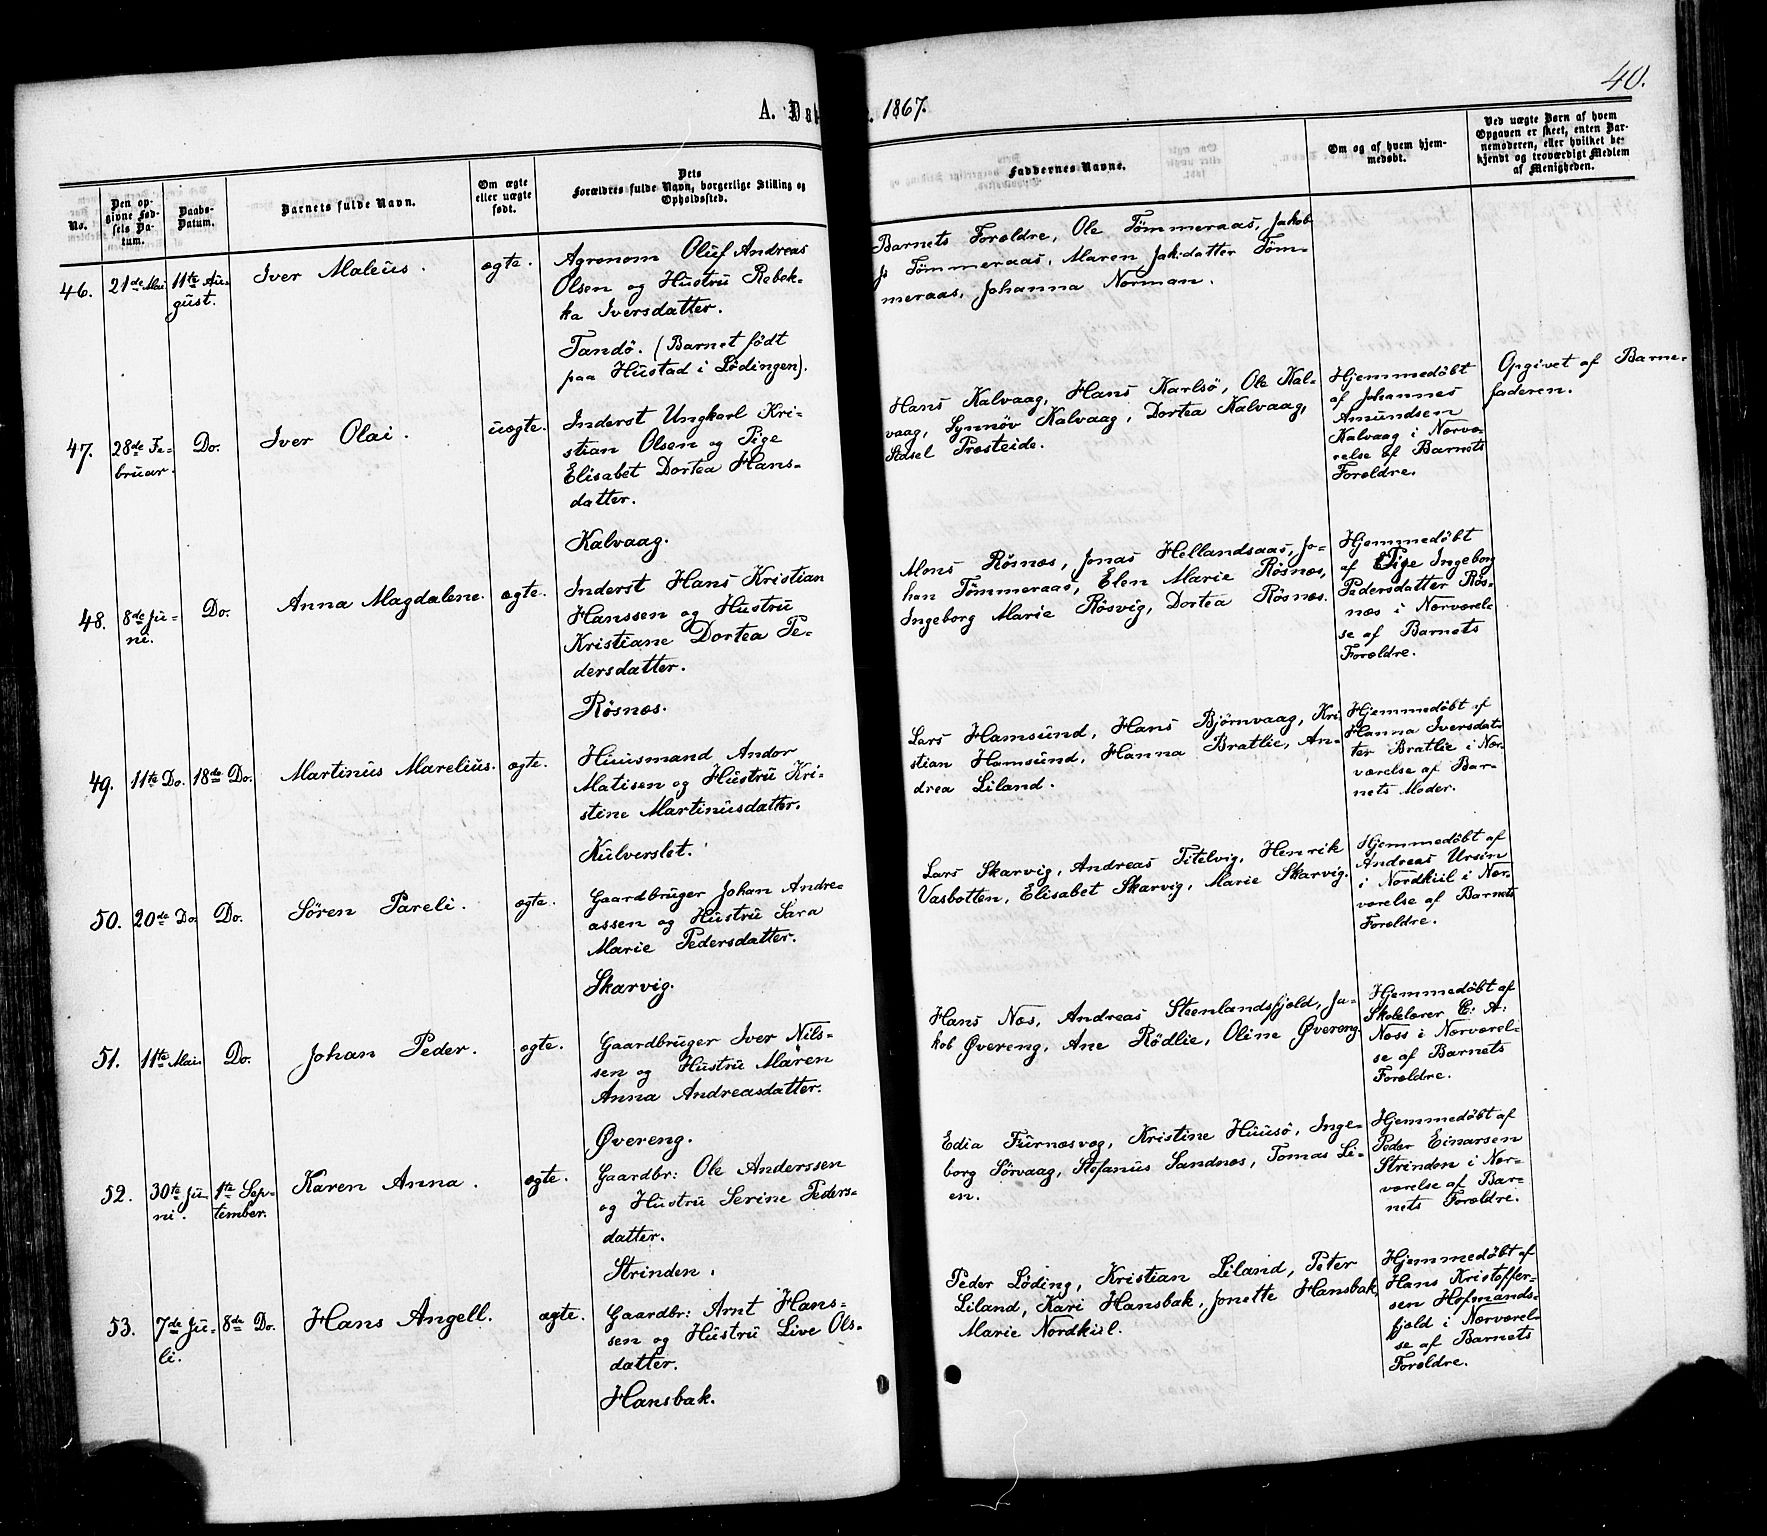 40.
A. Da 1867.
No.
Den op-
givne Fød-
sels Da-
tum.
Daabs-
Datum.
Barnets fulde Navn.
Om ægte
eller uægte
født.
Dets
Forældres fulde Navn, borgerlige Stilling og
Opholdssted.
Faddernes Navne.
Om og af hvem hjem-
medøbt.
Ved uægte Børn af hvem
Opgaven er skeet, enten Bar-
nemoderen, eller hvilket be-
kjendt og troværdigt Medlem
af Menigheden.
46.
21de Mai
11te Au-
gust.
Iver Maleus.
ægte.
Agronom Oluf Andreas
Olsen og Hustru Rebek-
ka Iversdatter.
Tandö. (Barnet født
paa Hustad i Lødingen).
Barnets Forældre, Ole Tömmeraas, Jakob
Js Tömmeraas, Maren Jak:datter Töm-
meraas, Johanna Norman.
47.
28de Fe-
bruar.
Do.
Iver Olai.
uægte.
Inderst Ungkarl Kri-
stian Olsen og Pige
Elisabet Dortea Hans-
datter.
Kalvaag.
Hans Kalvaag, Hans Karlsö, Ole Kal-
vaag, Synnöv Kalvaag, Dortea Kalvaag,
Sidsel Præsteide.
Hjemmedøbt
af Johannes
Amundsen
Kalvaag i Nærvæ-
relse af Barnets
Forældre.
Opgivet af Barne-
faderen.
48.
8de Ju-
ni.
Do.
Anna Magdalene.
ægte.
Inderst Hans Kristian
Hanssen og Hustru
Kristiane Dortea Pe-
dersdatter.
Rösnæs.
Mons Rösnæs, Jonas Hellandsaas, Jo-
han Tömmeraas, Elen Marie Rösnæs,
Ingeborg Marie Rösvig, Dortea Rösnæs.
Hjemmedøbt
af Pige Ingeborg
Pedersdatter Rös-
næs i Nærværel-
se af Barnets
Forældre.
49.
11te Do.
18de Do.
Martinus Marelius.
ægte.
Huusmand Andor
Matisen og Hustru Kri-
stine Martinusdatter.
Kulverslet.
Lars Hamsund, Hans Bjørnvaag, Kri
stian Hamsund, Hanna Bratlie, An-
drea Liland.
Hjemmedøbt af
Hanna Iversdat-
ter Bratlie i Nær-
værelse af Bar-
nets Moder.
50.
20de Do.
Do.
Søren Pareli.
ægte.
Gaardbruger Johan Andre-
assen og Hustru Sara
Marie Pedersdatter.
Skarvig.
Lars Skarvig, Andreas Titelvig, Henrik
Vasbotten, Elisabet Skarvig, Marie Skarvig.
Hjemmedøbt af
Andreas Ursin
i Nordkiil i Nær-
værelse af Barnets
Forældre.
51.
11te Mai.
Do.
Johan Peder.
ægte.
Gaardbruger Iver Nils-
sen og Hustru Maren
Anna Andreasdatter.
Øvereng.
Hans Næs, Andreas Steenlandsfjæld, Ja-
kob Øvereng, Ane Rödlie, Oline Øvereng.
Hjemmedøbt af
Skolelærer E. A.
Næss i Nærværel-
se af Barnets
Forældre.
52.
30te Ju-
ni.
1te Sep-
tember.
Karen Anna.
ægte.
Gaardbr: Ole Anderssen
og Hustru Serine Peders-
datter.
Strinden.
Edia Furnæsvæg, Kristine Huusö, Inge-
borg Sörvaag, Stefanus Sandnæs, Tomas Li-
en.
Hjemmedøbt af
Peder Einarsen
Strinden i Nær-
værelse af Bar-
nets Forældre.
53.
7de Ju-
li.
8de Do.
Hans Angell.
ægte.
Gaardbr: Arnt Hans-
sen og Hustru Live Ols-
datter.
Hansbak.
Peder Løding, Kristian Liland, Peter
Liland, Kari Hansbak, Jonette Hansbak,
Marie Nordkiil.
Hjemmedøbt af
Hans Kristoffer-
sen Hofmands-
fjæld i Nærværel-
se af Barnets
Forældre.